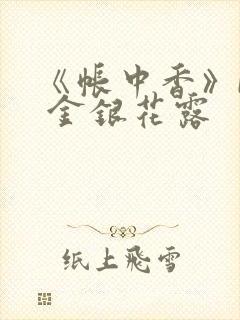 《帳中香》
金銀花露
纸上飛雪